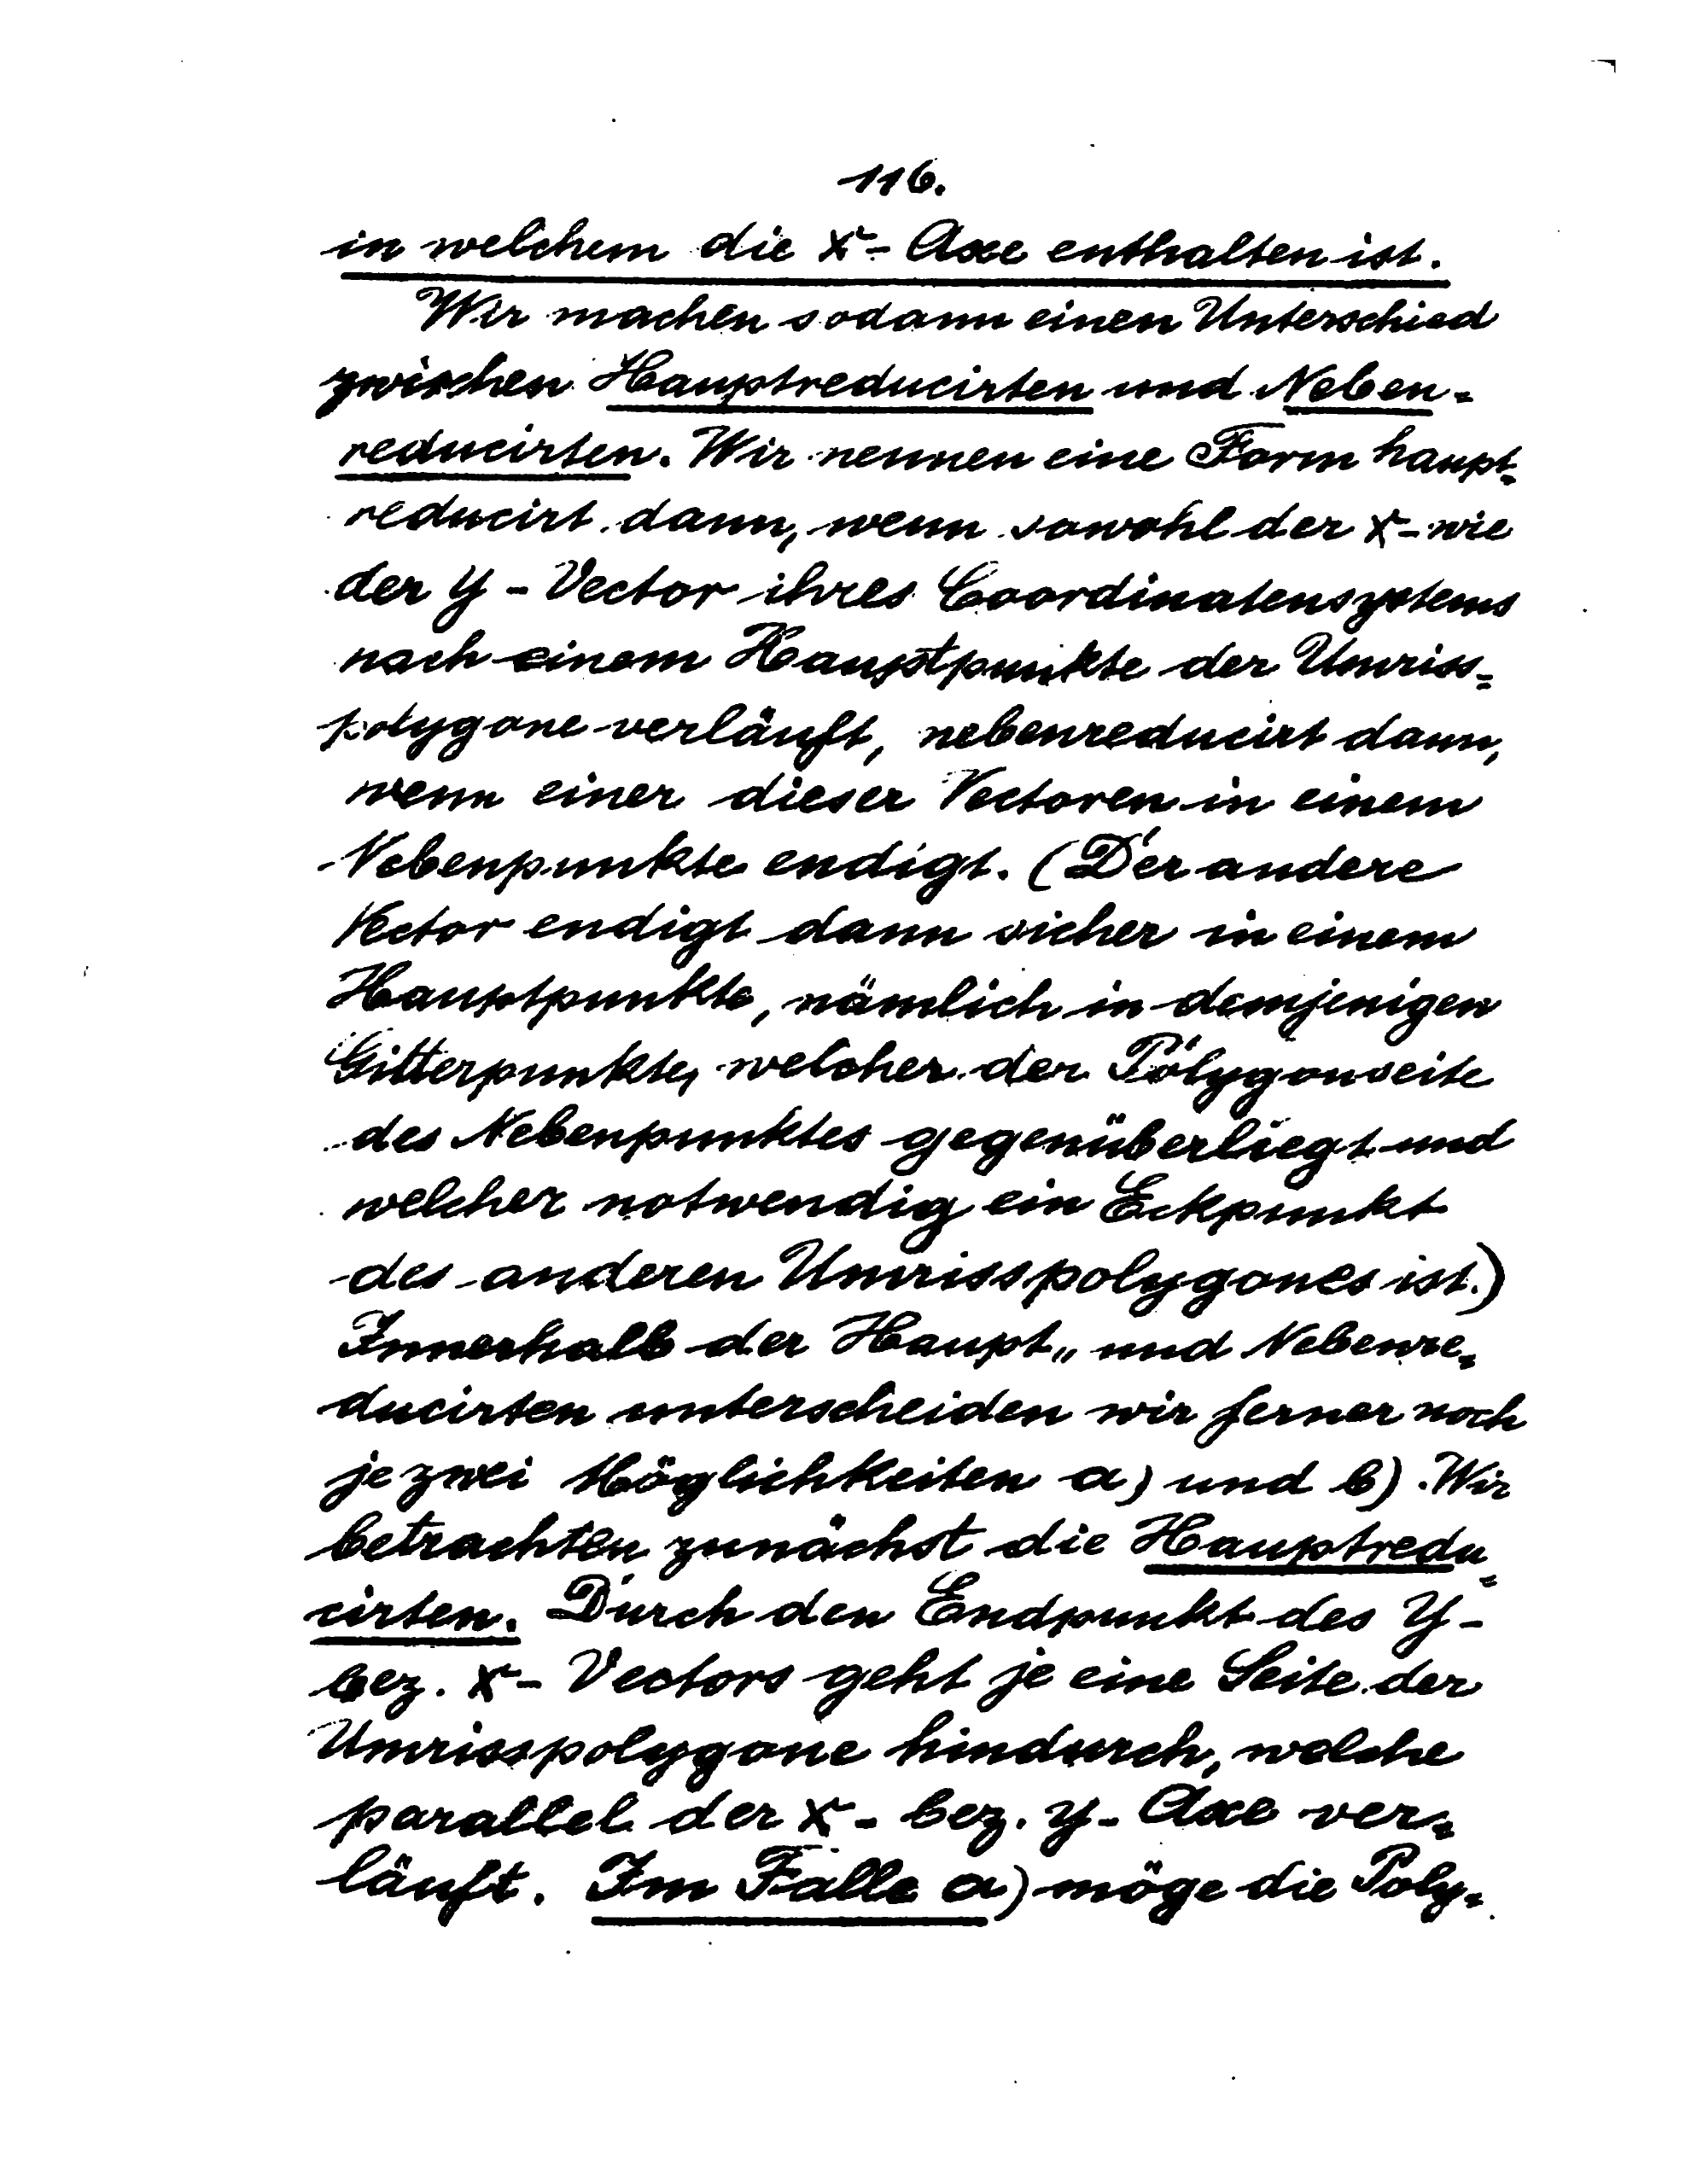 116.
in welchem die x-Axe enthalten ist.
Wir machen sodann einen Unterschied
zwischen Hauptreducirten und Neben-
reducirten. Wir nennen eine Form haupt-
reducirt dann, wenn sowohl der x- wie
der y-Vector ihres Coordinatensystems
nach einem Hauptpunkte der Umriss-
polygone verläuft, nebenreducirt dann,
wenn einer dieser Vectoren in einem
Nebenpunkte endigt. (Der andere
Vector endigt dann sicher in einem
Hauptpunkte, nämlich in demjenigen
Gitterpunkte, welcher der Polygonseite
des Nebenpunktes gegenüberliegt und
welcher notwendig ein Eckpunkt
des anderen Umrisspolygones ist.)
Innerhalb der Haupt- und Nebenre-
ducirten unterscheiden wir ferner noch
je zwei Möglichkeiten a) und b). Wir
betrachten zunächst die Hauptredu-
cirten. Durch den Endpunkt des y-
bez. x-Vectors geht je eine Seite der
Umrisspolygone hindurch, welche
parallel der x- bez. y-Axe ver-
läuft. Im Falle a) möge die Poly-